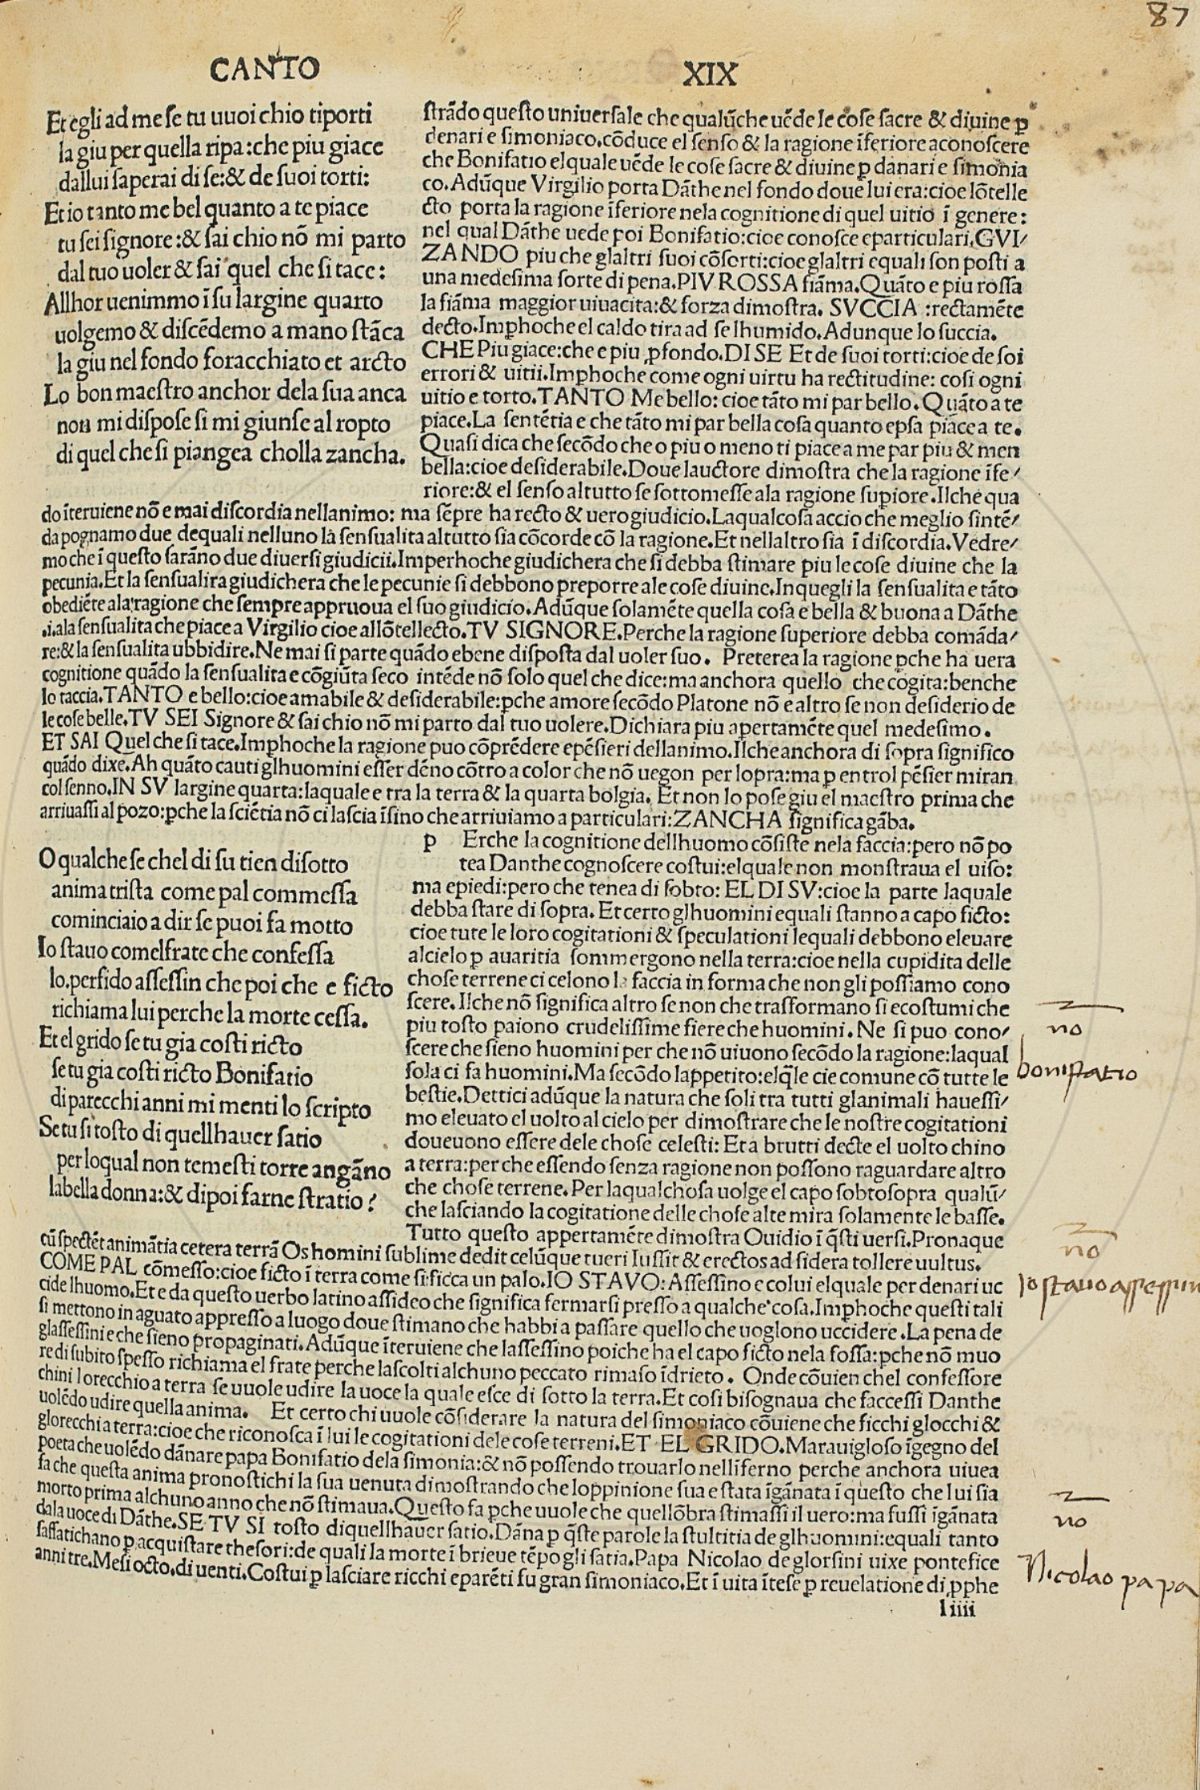 87
CANTO XIX
Et egli ad me se tu uuoi chio ti porti
la giu per quella ripa:che piu giace
dallui saperai di se:& de suoi torti:
Et io tanto me bel quanto a te piace
tu sei signore:& sai chio nõ mi parto
dal tuo uoler & sai quel che si tace:
Allhor uenimmo ĩ su largine quarto
uolgemo & discẽdemo a mano stãca
la giu nel fondo foracchiato et arcto
Lo bon maestro anchor dela sua anca
non mi dispose si mi giunse al ropto
di quel che si piangea cholla zancha.
strãdo questo uniuersale che qualũche uẽde le cose sacre & diuine ꝑ
denari e simoniaco.cõduce el senso & la ragione ĩferiore a conoscere
che Bonifatio elquale uẽde le cose sacre & diuine ꝑ danari e simonia
co.Adũque Virgilio porta Dãthe nel fondo doue lui era:cioe lõtelle
cto porta la ragione ĩferiore nela cognitione di quel uitio ĩ genere:
nel qual Dãthe uede poi Bonifatio:cioe conosce eparticulari.GVI/
ZANDO piu che glaltri suoi cõsorti:cioe glaltri equali son posti a
una medesima sorte di pena.PIV ROSSA fiãma.Quãto e piu rossa
la fiãma maggior uiuacita:& forza dimostra. SVCCIA :rectamẽte
decto.Imphoche el caldo tira ad se lhumido.Adunque lo succia.
CHE Piu giace:che e piu ꝓfondo.DI SE Et de suoi torti:cioe de soi
errori & uitii.Imphoche come ogni uirtu ha rectitudine: cosi ogni
uitio e torto.TANTO Me bello: cioe tãto mi par bello. Quãto a te
piace.La sentẽtia e che tãto mi par bella cosa quanto epsa piace a te.
Quasi dica che secõdo che o piu o meno ti piace a me par piu & men
bella:cioe desiderabile.Doue lauctore dimostra che la ragione ĩfe/
riore:& el senso altutto se sottomesse ala ragione supiore.Ilche qua
do ĩteruiene nõ e mai discordia nellanimo: ma sẽpre ha recto & uero giudicio.Laqualcosa accio che meglio sintẽ/
da pognamo due dequali nelluno la sensualita altutto sia cõcorde cõ la ragione.Et nellaltro sia ĩ discordia.Vedre/
mo che ĩ questo sarãno due diuersi giudicii.Imperhoche giudichera che si debba stimare piu le cose diuine che la
pecunia.Et la sensualira giudichera che le pecunie si debbono preporre ale cose diuine.Inquegli la sensualita e tãto
obediẽte ala ragione che sempre appruoua el suo giudicio.Adũque solamẽte quella cosa e bella & buona a Dãthe
.i.ala sensualita che piace a Virgilio cioe allõtellecto.TV SIGNORE.Perche la ragione superiore debba comãda/
re:& la sensualita ubbidire.Ne mai si parte quãdo ebene disposta dal uoler suo. Preterea la ragione ꝑche ha uera
cognitione quãdo la sensualita e cõgiũta seco intẽde nõ solo quel che dice:ma anchora quello che cogita:benche
lo taccia.TANTO e bello:cioe amabile & desiderabile:ꝑche amore secõdo Platone nõ e altro se non desiderio de
le cose belle.TV SEI Signore & sai chio nõ mi parto dal tuo uolere.Dichiara piu apertamẽte quel medesimo.
ET SAI Quel che si tace.Imphoche la ragione puo cõprẽdere epẽsieri dellanimo.Ilche anchora di sopra significo
quãdo dixe.Ah quãto cauti glhuomini esser dẽno cõtro a color che nõ uegon per lopra:ma ꝑ entrol pẽsier miran
col senno.IN SV largine quarta:laquale e tra la terra & la quarta bolgia. Et non lo pose giu el maestro prima che
arriuassi al pozo:ꝑche la sciẽtia nõ ci lascia ĩsino che arriuiamo a particulari:ZANCHA significa gãba.
O qual che se chel di su tien disotto
anima trista come pal commessa
cominciaio a dir se puoi fa motto
Io stauo comelfrate che confessa
lo.perfido assessin che poi che e ficto
richiama lui perche la morte cessa.
Et el grido se tu gia costi ricto
se tu gia costi ricto Bonifatio
di parecchi anni mi menti lo scripto
Se tu si tosto di quellhauer satio
per loqual non temesti torre angãno
la bella donna:& dipoi farne stratio?
p Erche la cognitione dellhuomo cõsiste nela faccia:pero nõ po
tea Danthe cognoscere costui:elquale non monstraua el uiso:
ma epiedi:pero che tenea di sobto: EL DI SV:cioe la parte laquale
debba stare di sopra. Et certo glhuomini equali stanno a capo ficto:
cioe tute le loro cogitationi & speculationi lequali debbono eleuare
alcielo ꝑ auaritia sommergono nella terra:cioe nella cupidita delle
chose terrene ci celono la faccia in forma che non gli possiamo cono
scere. Ilche nõ significa altro se non che trasformano si ecostumi che
piu tosto paiono crudelissime fiere che huomini. Ne si puo cono/
scere che sieno huomini per che nõ uiuono secõdo la ragione:laqual
sola ci fa huomini.Ma secõdo lappetito:elq̃le cie comune cõ tutte le
bestie.Dettici adũque la natura che soli tra tutti glanimali hauessi/
mo eleuato el uolto al cielo per dimostrare che le nostre cogitationi
doueuono essere dele chose celesti: Et a brutti decte el uolto chino
a terra:per che essendo senza ragione non possono raguardare altro
che chose terrene. Per laqualchosa uolge el capo sobtosopra qualũ/
che lasciando la cogitatione delle chose alte mira solamente le basse.
Tutto questo appertamẽte dimostra Ouidio ĩ q̃sti uersi.Pronaque
cũ spectẽt animãtia cetera terrã Os homini sublime dedit celũque tueri Iussit & erectos ad sidera tollere uultus.
COME PAL cõmesso:cioe ficto ĩ terra come si ficca un palo.IO STAVO:Assessino e colui elquale per denari uc
cide lhuomo.Et e da questo uerbo latino assideo che significa fermarsi presso a qualche cosa.Imphoche questi tali
si mettono in aguato appresso a luogo doue stimano che habbi a passare quello che uoglono uccidere.La pena de
glassessini e che sieno propaginati.Adũque ĩteruiene che lassessino poiche ha el capo ficto nela fossa:ꝑche nõ muo
re di subito spesso richiama el frate perche lascolti alchuno peccato rimaso ĩdrieto. Onde cõuien chel confessore
chini lorecchio a terra se uuole udire la uoce la quale esce di sotto la terra.Et cosi bisognaua che faccessi Danthe
uolẽdo udire quella anima. Et certo chi uuole cõsiderare la natura del simoniaco cõuiene che ficchi glocchi &
glorecchi a terra:cioe che riconosca ĩ lui le cogitationi dele cose terreni.ET EL GRIDO.Marauigloso ĩgegno del
poeta che uolẽdo dãnare papa Bonifatio dela simonia:& nõ possendo trouarlo nellinferno perche anchora uiuea
fa che questa anima pronostichi la sua uenuta dimostrando che loppinione sua e stata ĩgãnata ĩ questo che lui sia
morto prima alchuno anno che nõ stimaua.Questo fa ꝑche uuole che quellõbra stimassi il uero:ma fussi ĩgãnata
dala uoce di Dãthe.SE TV SI tosto diquellhauer satio. Dãna ꝑ q̃ste parole la stultitia de glhuomini:equali tanto
saffatichano ꝑ acquistare thesori:de quali la morte ĩ brieue tẽpo gli satia.Papa Nicolao de glorsini uixe pontefice
anni tre.Mesi octo.di uenti.Costui ꝑ lasciare ricchi eparẽti fu gran simoniaco.Et ĩ uita ĩtese ꝑ reuelatione di ꝓphe
liiii
no
bonifatio
no
Io stauo assessin
no
Nicolao papa